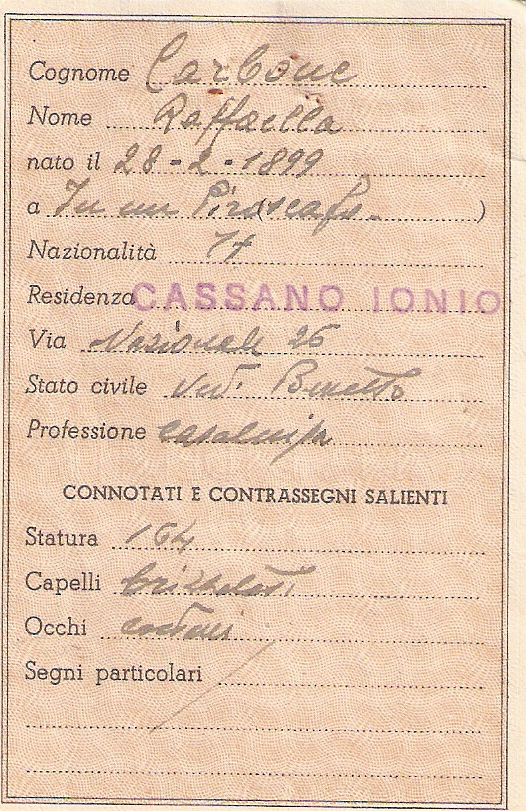 Cognome Carbone
Nome Raffaella
nato il 28-2-1899
a In un Piroscafo ( )
Nazionalità It
Residenza CASSANO IONIO
Via Nazionale 26
Stato civile Ved.
Professione casalinga
CONNOTATI E CONTRASSEGNI SALIENTI
Statura 164
Capelli brizzolati
Occhi castani
Segni particolari